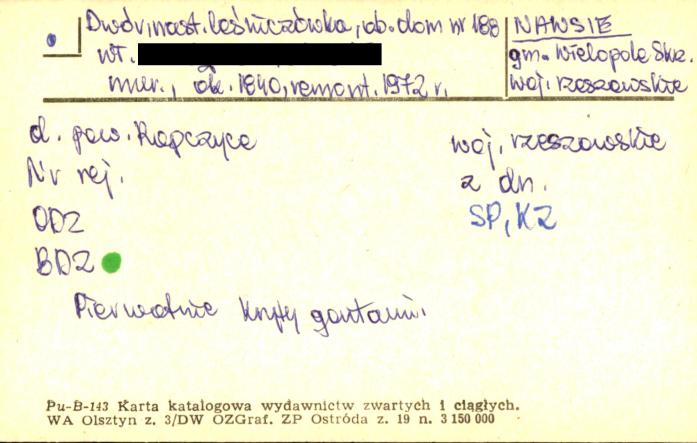 Dwór, nast. leśniczówka, ob. dom nr 188
wł.
mur., ok. 1840, remont. 1972 r.
NAWSIE
gm. Wielopole Skrz.
woj. rzeszowskie
d. pow. Ropczyce
woj. rzeszowskie
Nr rej.
z dn.
ODZ
SP, KZ
BDZ
Pierwotnie kryty gontami.
Pu-B-143 Karta katalogowa wydawnictw zwartych i ciągłych.
WA Olsztyn z. 3/DW OZGraf. ZP Ostróda z. 19 n. 3 150 000